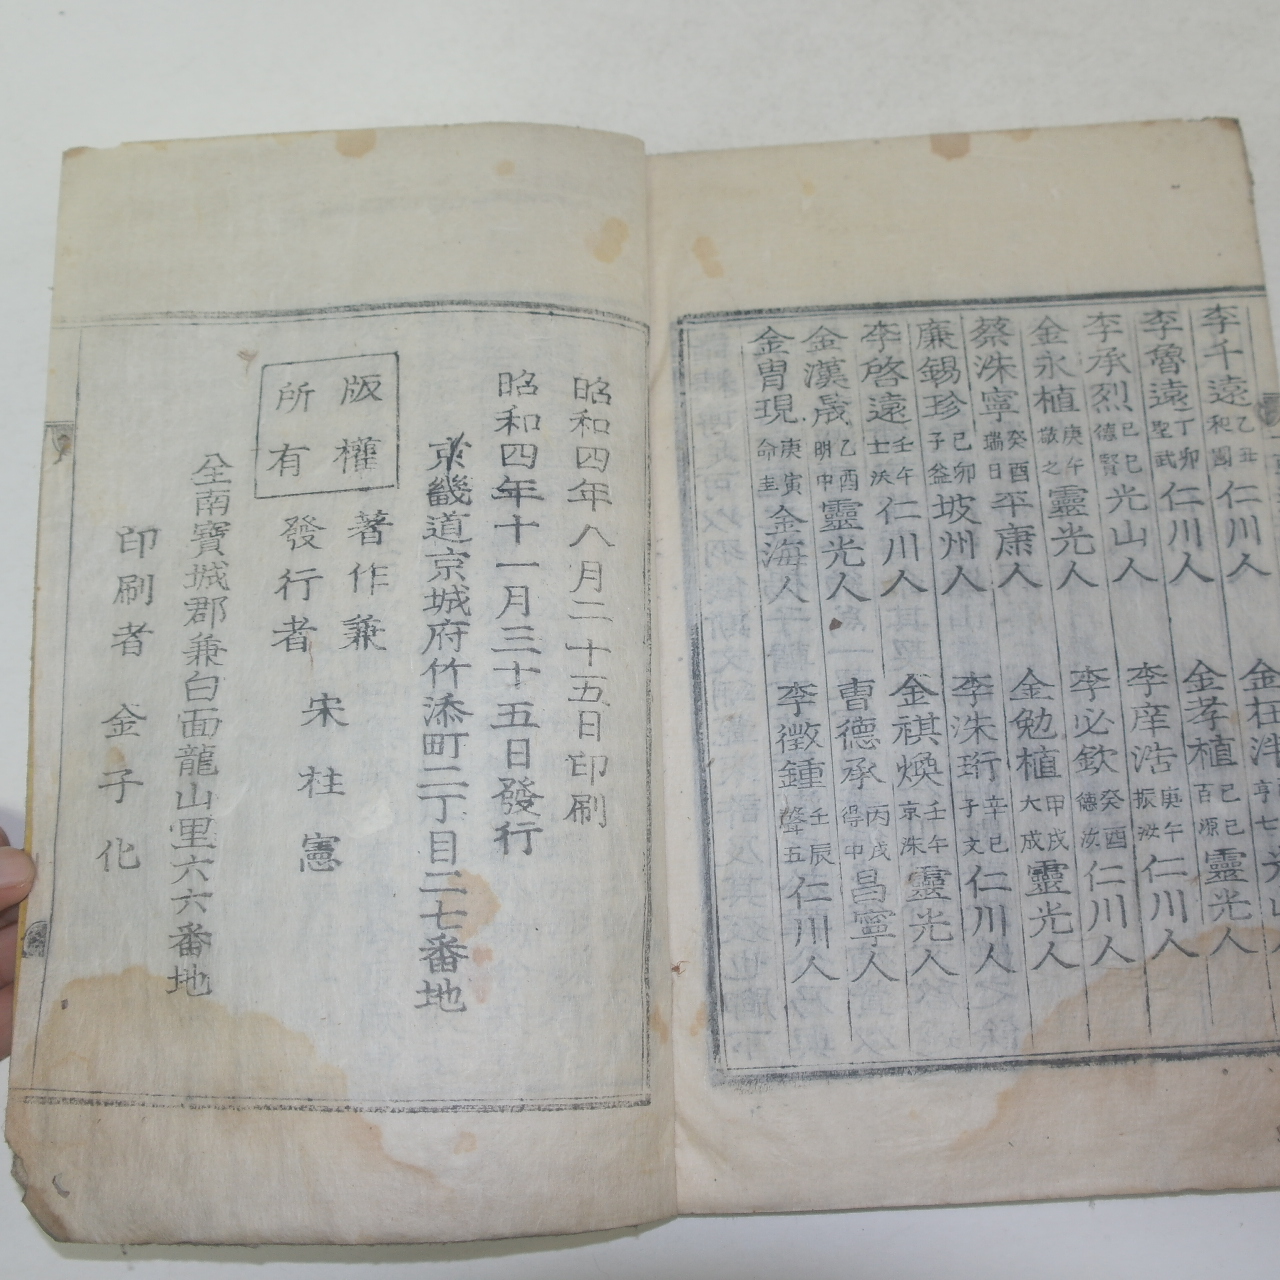 李千遠 乙丑 和國 仁川人
金在泮 亨七 光山
李魯遠 丁卯 聖武 仁川人
金孝植 己巳 百源 靈光人
李承烈 己巳 德賢 光山人
李㡣浩 庚午 振汝 仁川人
金永植 庚午 敬之 靈光人
李必欽 癸酉 德汝 仁川人
蔡洙寧 癸酉 瑞日 平康人
金勉植 甲戌 大成 靈光人
廉錫珍 己卯 子益 坡州人
李洙珩 辛巳 子文 仁川人
李啓遠 壬午 士沃 仁川人
金祺煥 壬午 京洙 靈光人
金漢晟 乙酉 明中 靈光人
曺德承 丙戌 得中 昌寧人
金胄現 庚寅 命圭 金海人
李徵鍾 壬辰 聲五 仁川人
昭和四年八月二十五日印刷
昭和四年十一月三十五日發行
京畿道京城府竹添町二丁目二七番地
版權所有
著作兼發行者 宋柱憲
全南寶城郡兼白面龍山里六六番地
印刷者 金子化